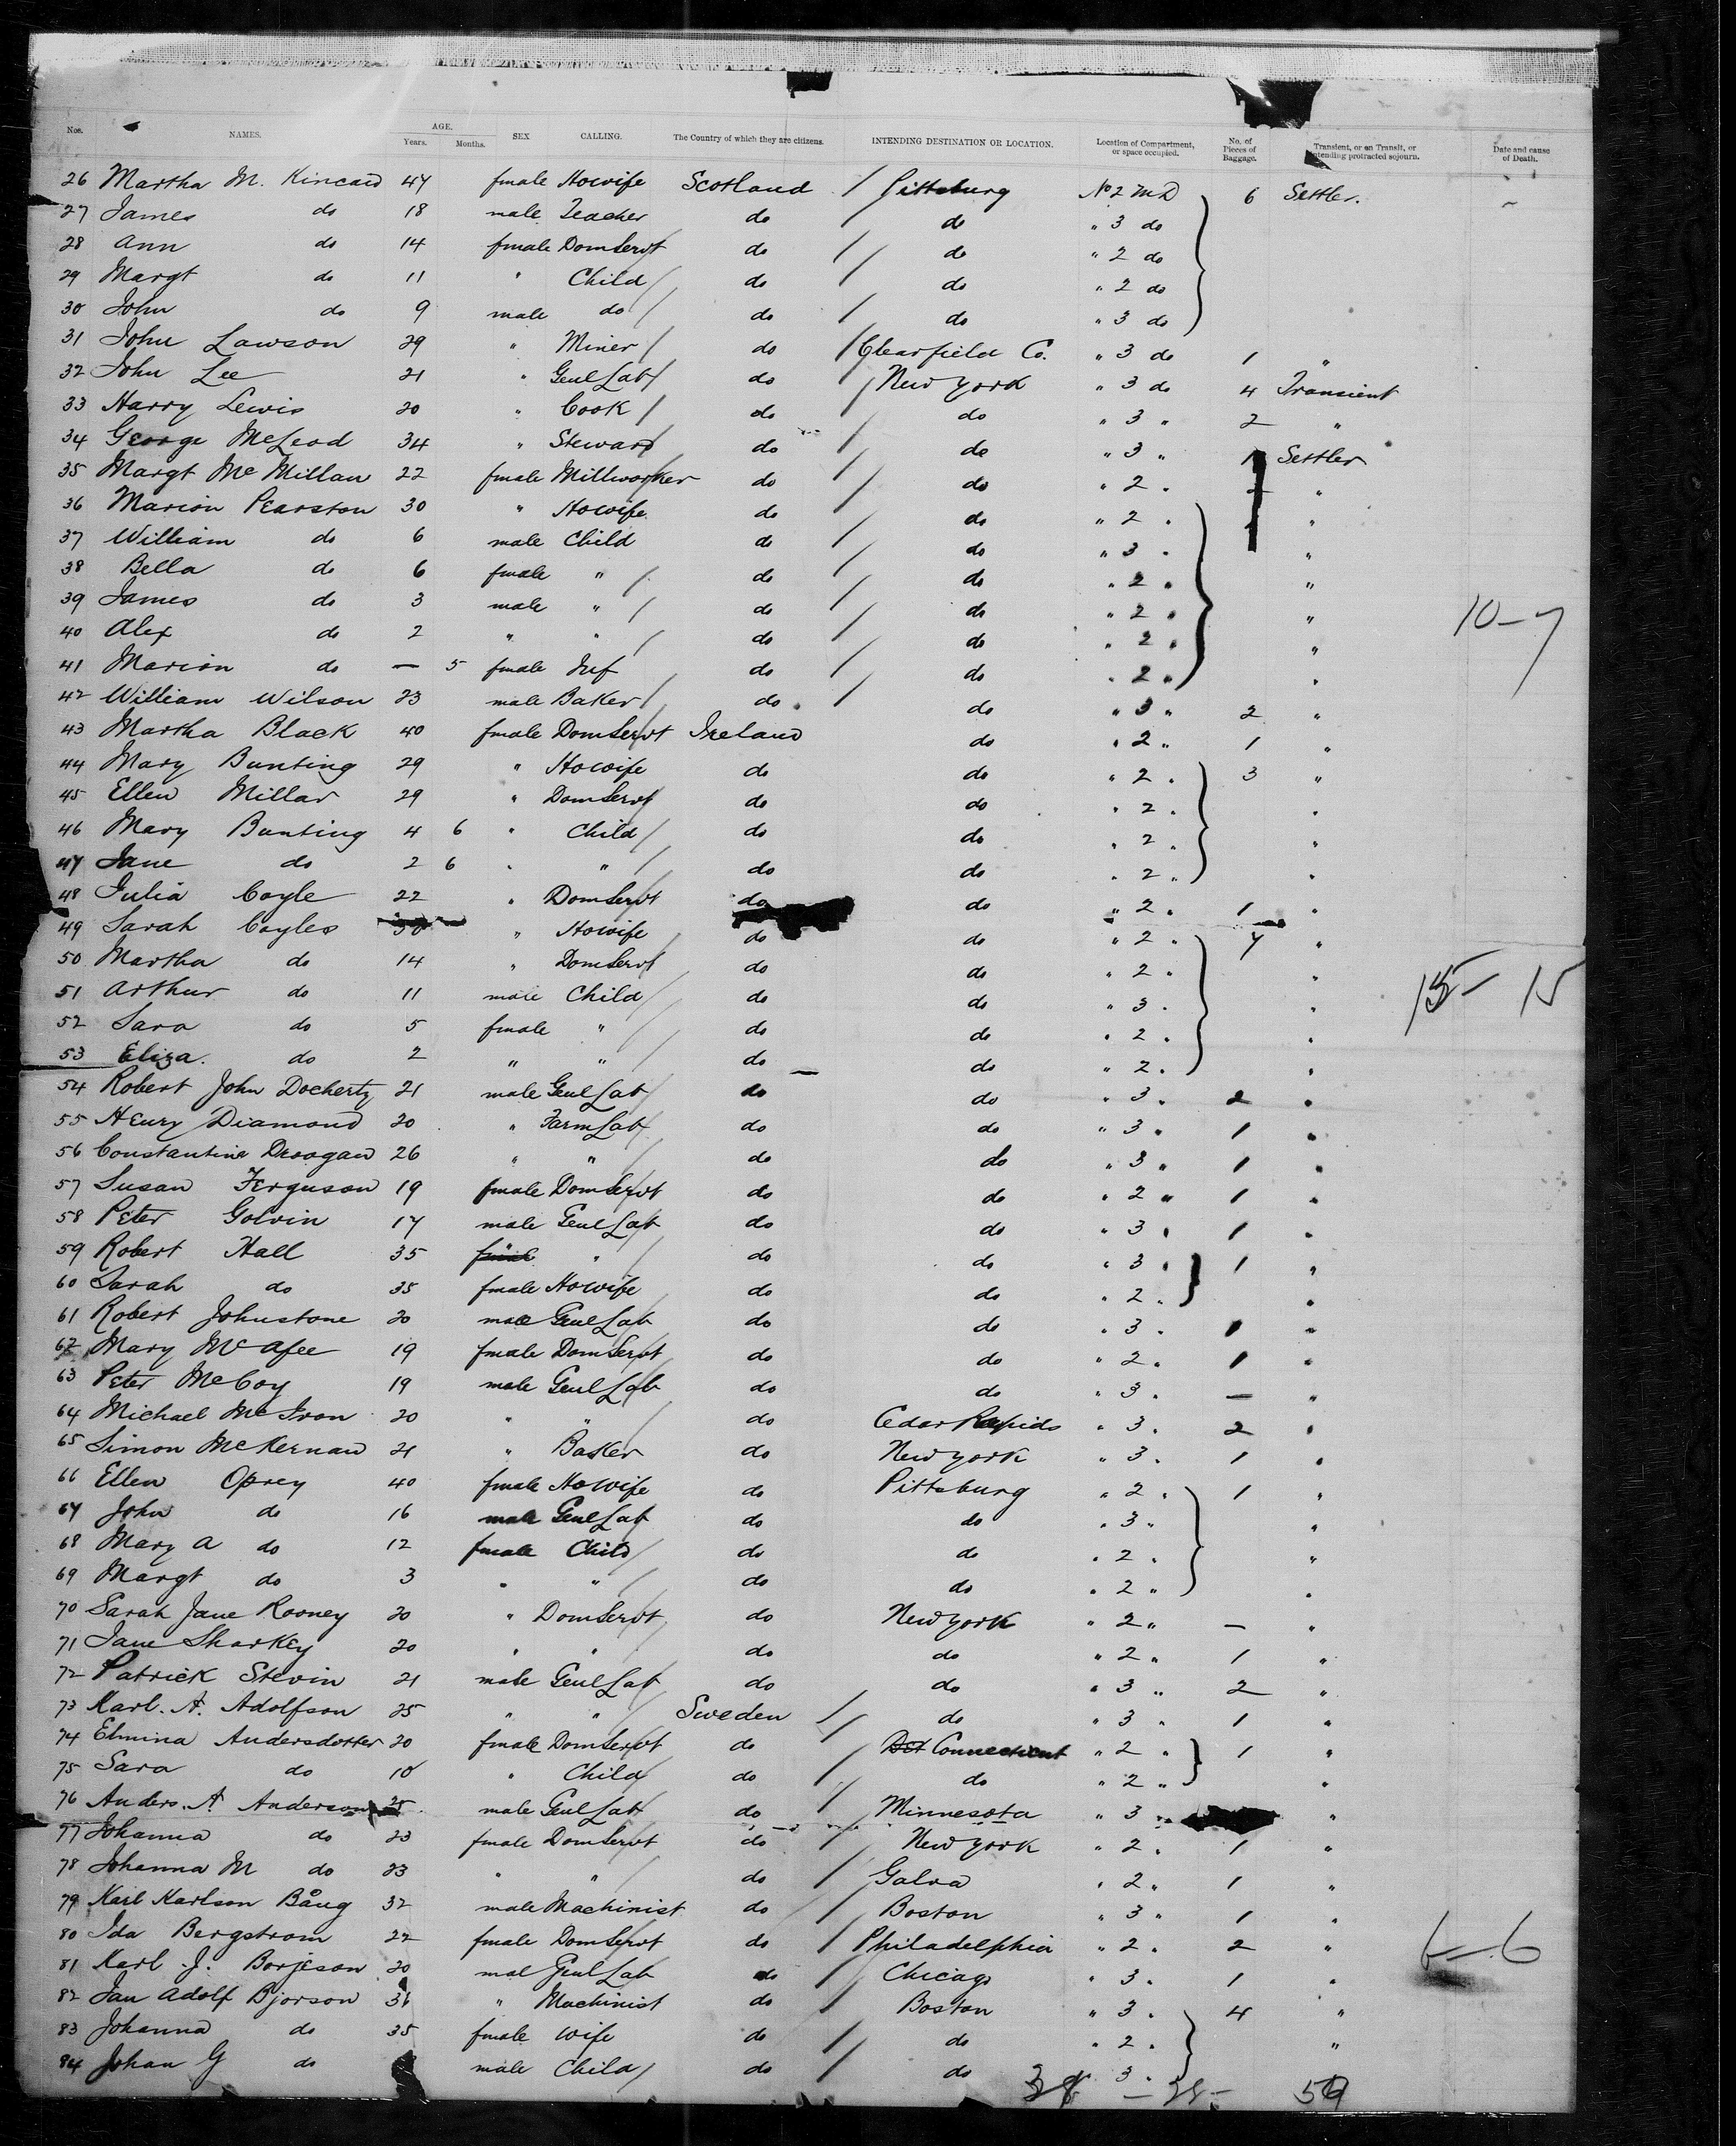 Nos. NAMES. AGE. Years. Months. SEX CALLING. The Country of which they are citizens. INTENDING DESTINATION OR LOCATION. Location of Compartment, or space occupied. No. of Pieces of Baggage. Transient, or on Transit, or intending protracted sojourn. Date and cause of Death.
26 Martha M. Kincaid 47 female Howife Scotland / Pittsburg No 2 MD 6 Settler.
27 James do 18 male Teacher do do " 3 do
28 Ann do 14 female Dom Servt do / do " 2 do
29 Margt do 11 " Child do / do " 2 do
30 John do 9 male do do / do " 3 do
31 John Lawson 29 " Miner do / Clearfield Co. " 3 do 1 "
32 John Lee 21 " Genl Lab do / New York " 3 do 4 Transient
33 Harry Lewis 20 " Cook do / do " 3 " 2 "
34 George McLeod 34 " Steward do / do " 3 " 1 Settler
35 Margt McMillan 22 female Millworker do / do " 2 " "
36 Marion Pearston 30 " Howife do / do " 2 " "
37 William do 6 male Child do / do " 3 " "
38 Bella do 6 female " do / do " 2 " "
39 James do 3 male " do / do " 2 " "
40 Alex do 2 " " do / do " 2 " "
10-7
41 Marion do — 5 female Inf do / do " 2 " "
42 William Wilson 23 male Baker do / do " 3 " 2 "
43 Martha Black 40 female Dom Servt Ireland do " 2 " 1 "
44 Mary Bunting 29 " Howife do do " 2 " 3 "
45 Ellen Millar 29 " Dom Servt do do " 2 " "
46 Mary Bunting 4 6 " Child do do " 2 " "
47 Jane do 2 6 " " do do " 2 " "
48 Julia Coyle 22 " Dom Servt do do " 2 " 1 "
49 Sarah Coyles " Howife do do " 2 " 7 "
50 Martha do 14 " Dom Servt do do " 2 " "
51 Arthur do 11 male Child do do " 3 " "
15-15
52 Sara do 5 female " do do " 2 " "
53 Eliza. do 2 " " do do " 2 " "
54 Robert John Docherty 21 male Genl Lab do do " 3 " 2 "
55 Henry Diamond 20 " Farm Lab do do " 3 " 1 "
56 Constantine Droogan 26 " " do do " 3 " 1 "
57 Susan Ferguson 19 female Dom Servt do do " 2 " 1 "
58 Peter Golvin 17 male Genl Lab do do " 3 " 1 "
59 Robert Hall 35 " do do " 3 " 1 "
60 Sarah do 35 female Howife do do " 2 " "
61 Robert Johnstone 20 male Genl Lab do do " 3 " 1 "
62 Mary McAfee 19 female Dom Servt do do " 2 " 1 "
63 Peter McCoy 19 male Genl Lab do do " 3 " — "
64 Michael McIvon 20 " " do Cedar Rapids " 3 " 2 "
65 Simon McKernan 21 " Basker do New York " 3 " 1 "
66 Ellen Oprey 40 female Howife do Pittsburg " 2 " 1 "
67 John do 16 male Genl Lab do do " 3 " "
68 Mary A do 12 female Child do do " 2 " "
69 Margt do 3 " " do do " 2 " "
70 Sarah Jane Rooney 20 " Dom Servt do New York " 2 " — "
71 Jane Sharkey 20 " " do do " 2 " 1 "
72 Patrick Stevin 21 male Genl Lab do do " 3 " 2 "
73 Karl. A. Adolfson 25 " " Sweden / do " 3 " 1 "
74 Elmina Andersdotter 20 female Dom Servt do / Connecticut " 2 " 1 "
75 Sara do 10 " Child do / do " 2 " "
76 Anders. A. Anderson 25 male Genl Lab do / Minnesota " 3 " "
77 Johanna do 23 female Dom Servt do / New York " 2 " 1 "
78 Johanna M do 23 " " do / Galva " 2 " 1 "
79 Karl Karlson Båug 32 male Machinist do / Boston " 3 " 1 "
80 Ida Bergstrom 22 female Dom Servt do / Philadelphia " 2 " 2 "
6-6
81 Karl J. Borjeson 20 mal Genl Lab do / Chicago " 3 " 1 "
82 Jan Adolf Bjorson 36 " Machinist do / Boston " 3 " 4 "
83 Johanna do 35 female Wife do / do " 2 " "
84 Johan G do male Child do / do 3 "